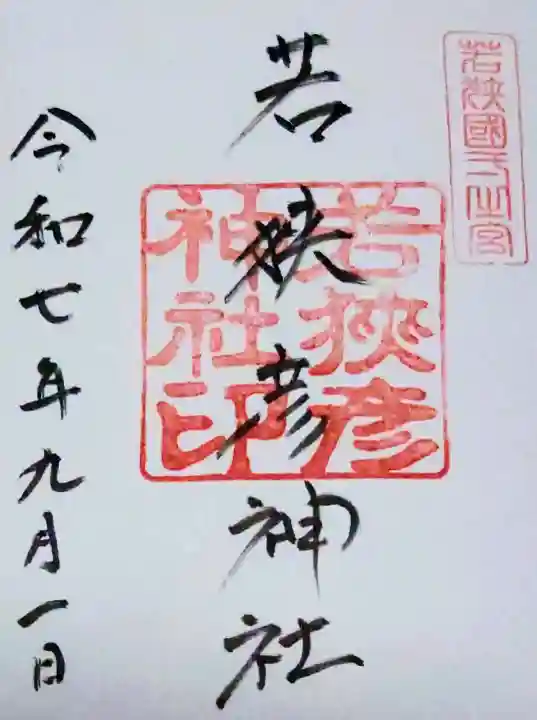 若狭國一之宮
若狭彦神社
若狹彦
神社印
令和七年九月一日